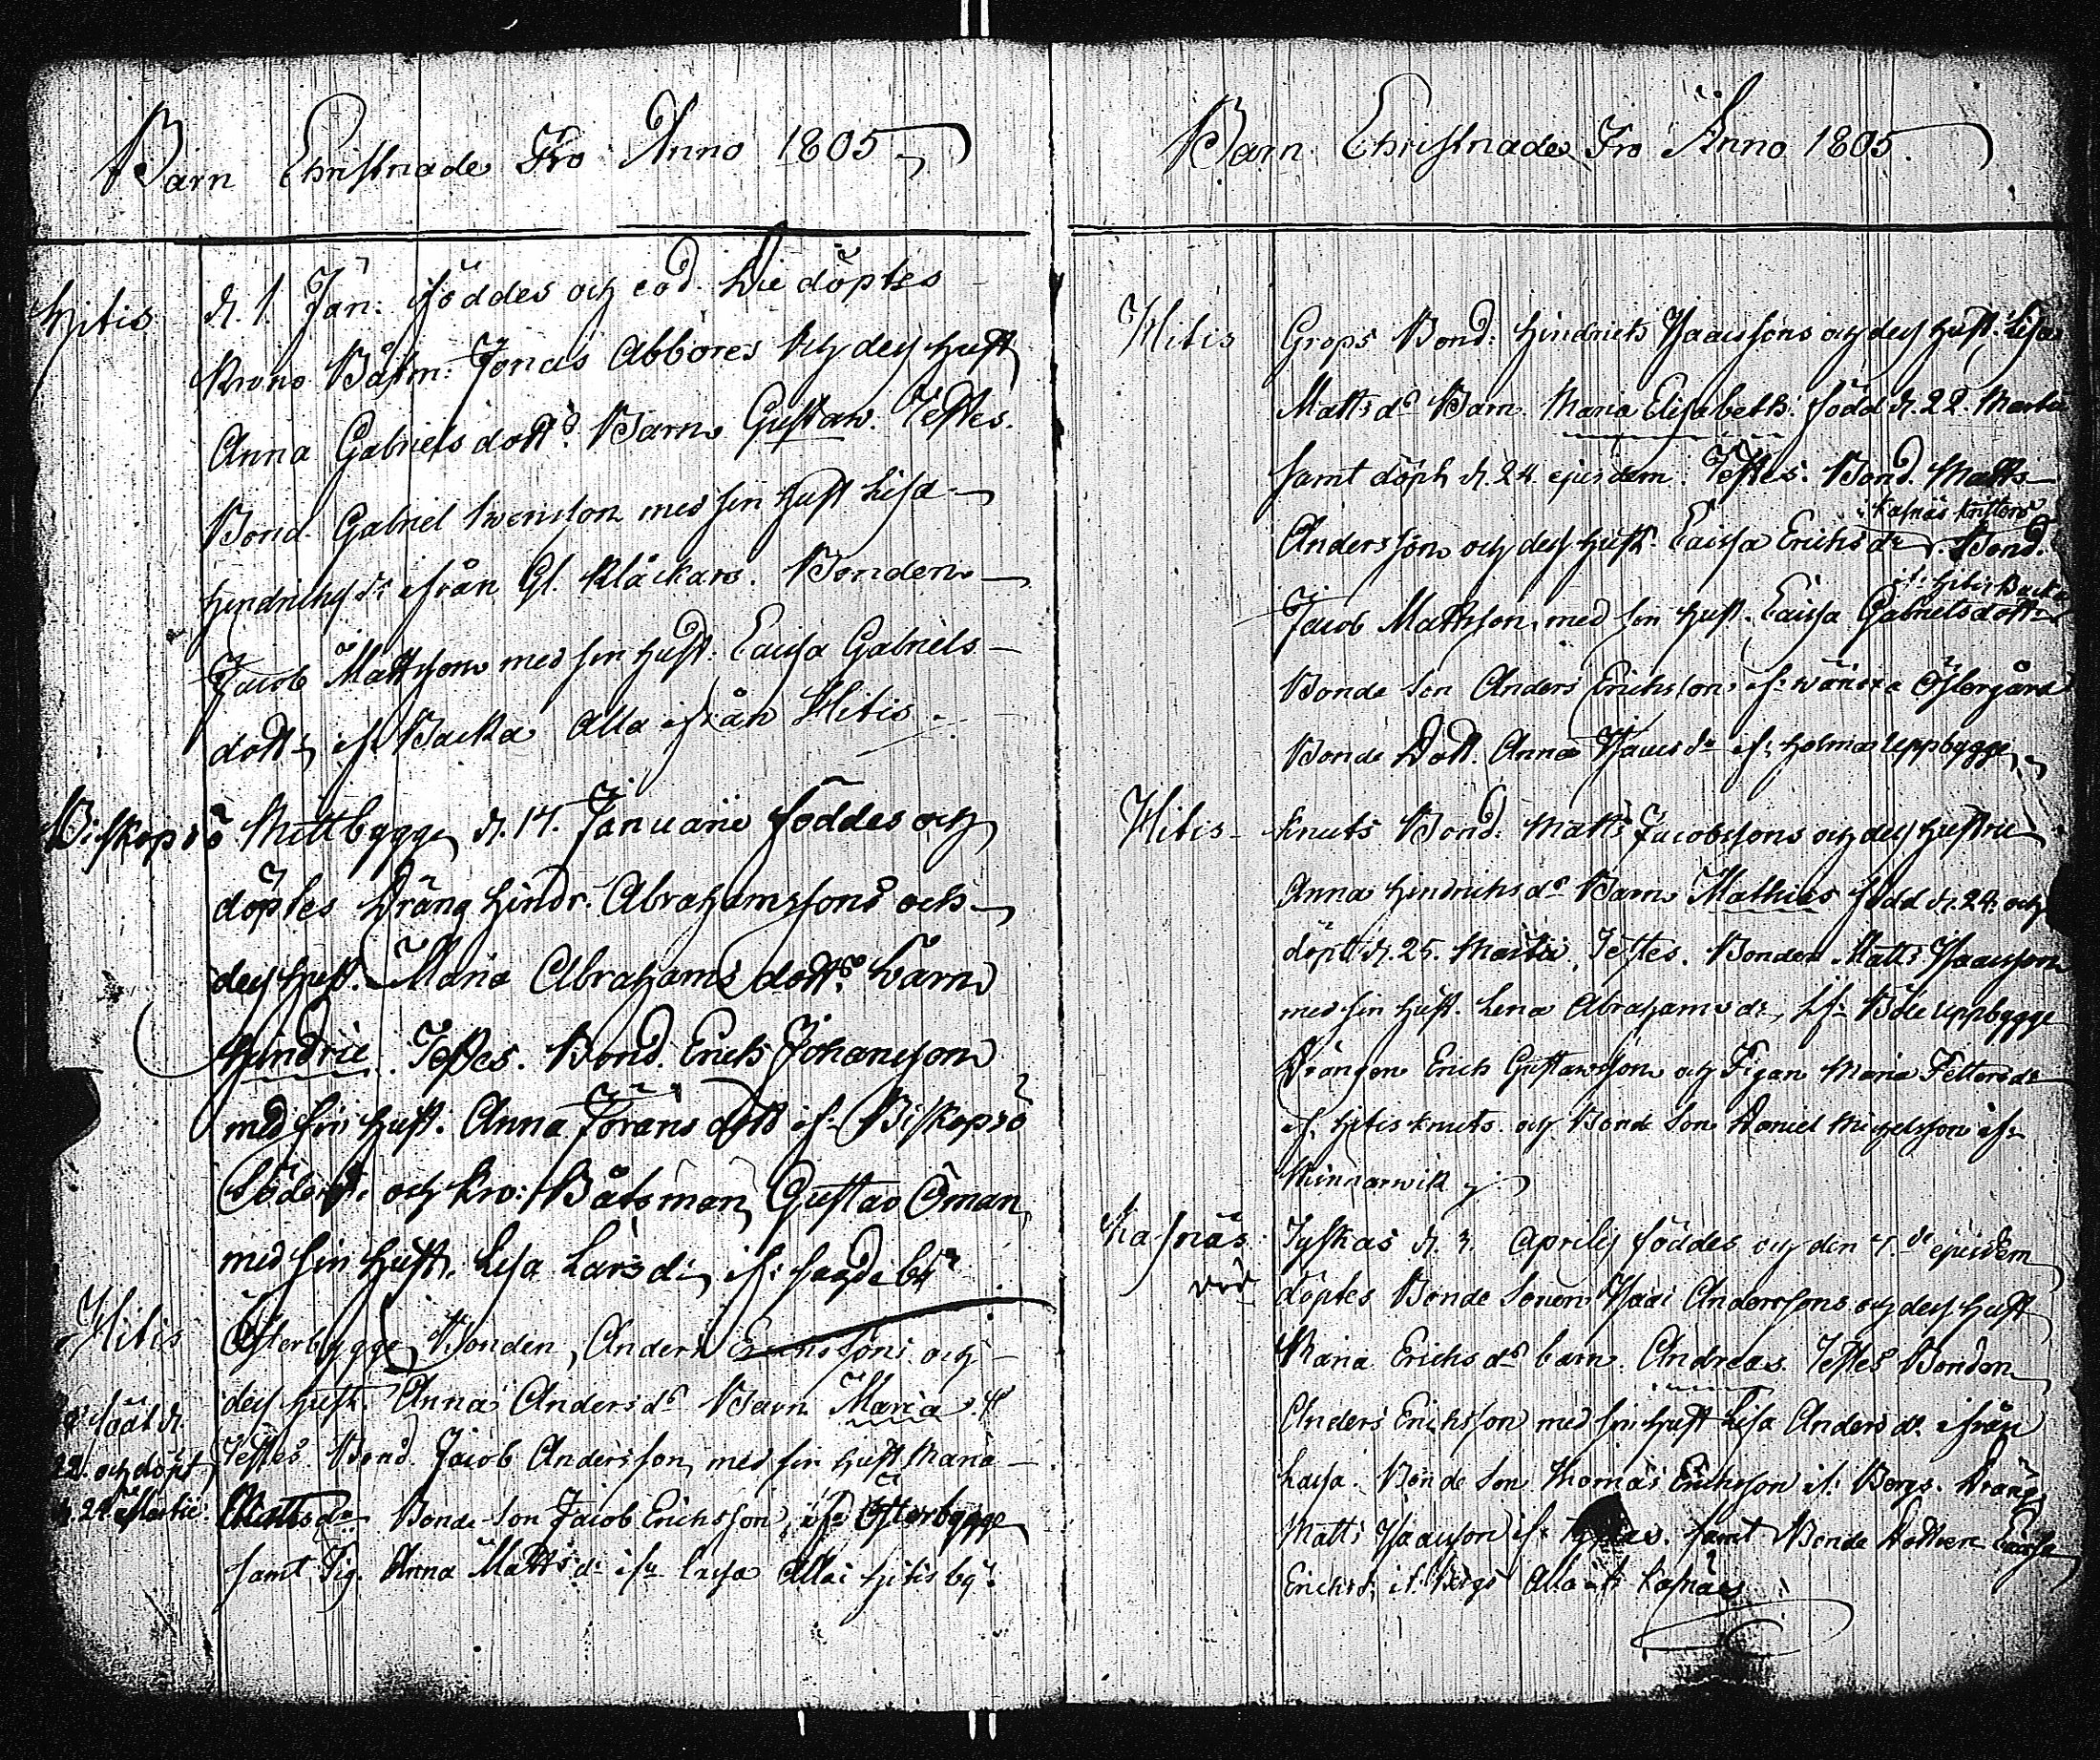 Barn Christnade Fro Anno 1805
Hitis d. 1. Jan: föddes och eod. Die döptes
Krono Båtsm: Jonas Abbores och dess Hust
Anna Gabriels dottrs Barn Gustaw. Testes.
Bond. Gabriel Svensson med sin Hust Lisa
Hendrichsdr ifrån Gl. Klåckars. Bonden
Jacob Mattsson med sin Hust: Caisa Gabriels
dottr if. Backa Alla ifrån Hitis.
Biskopsö Mittbygge d. 17. Januarii föddes och
döptes Dräng Hindr. Abrahamssons och
dess Hust. Maria Abrahams dottrs barn
Hindric. Testes. Bond. Erich Johansson
med sin Hust. Anna Jörans dott if. Biskopsö
Söderg. och Kro: Båtsman Gustav Öman
med sin Hust. Lisa Larsdr if. sagde by
Hitis Österbygge Bonden Anders Erichssons och
dess Hust. Anna Anders ds Barn Maria #
# född d.
22. och döpt
d. 24 Martii.
Testes Bond. Jacob Andersson med sin Hust Maria
Mattsdr Bonde Son Jacob Erichsson ifr Österbygge
samt Pig. Anna Matts dr ifr Lassa Alla i Hitis by.
Barn Christnade Fro Anno 1805.
Hitis Grops Bond: Hindrich Isaacssons och dess Hust. Lisa
Matts ds Barn Maria Elisabeth: född d. 22. Martii
samt döpt d. 24 ejusdem. Testes. Bond. Matts
Andersson och dess Hust. Caisa Erichs dr i Kasnäs Bond.
Jacob Mattsson, med sin Hust. Caisa Gabriels dottr if. Hitis Backa
Bonde Son Anders Erichsson, if. Wänoxa Östergård
Bonde Dott. Anna Isaacs dr if. Holma Uppbygge
Hitis Knuts Bond: Matts Jacobssons och dess Hustru
Anna Hindrichs ds Barn Mathias född d. 24. och
döpt d. 25. Martii, Testes. Bonden Matts Isaacsson
med sin Hust. Lena Abrahams dr, if. Böle Uppbygge
Drängen Erich Gustavsson och Pigan Maria
if. Hitis Knuts. och Bonde Son Daniel Michelsson ifr
Kasnäs Tyskas d. 3. Aprilis föddes och den 4. de ejusdem
döptes Bonde Sonen Isaac Anderssons och dess Hust
Maria Erichs ds barn Andreas. Testes Bonden
Anders Erichsson med sin Hust Lisa Anders dr ifrån
Lassa. Bonde Son Thomas Erichsson if. Bergs. Dräng
Matts Isaacsson if. samt Bonde Dottren Caisa
Erichsd. if. Bergs Alla Kasnäs